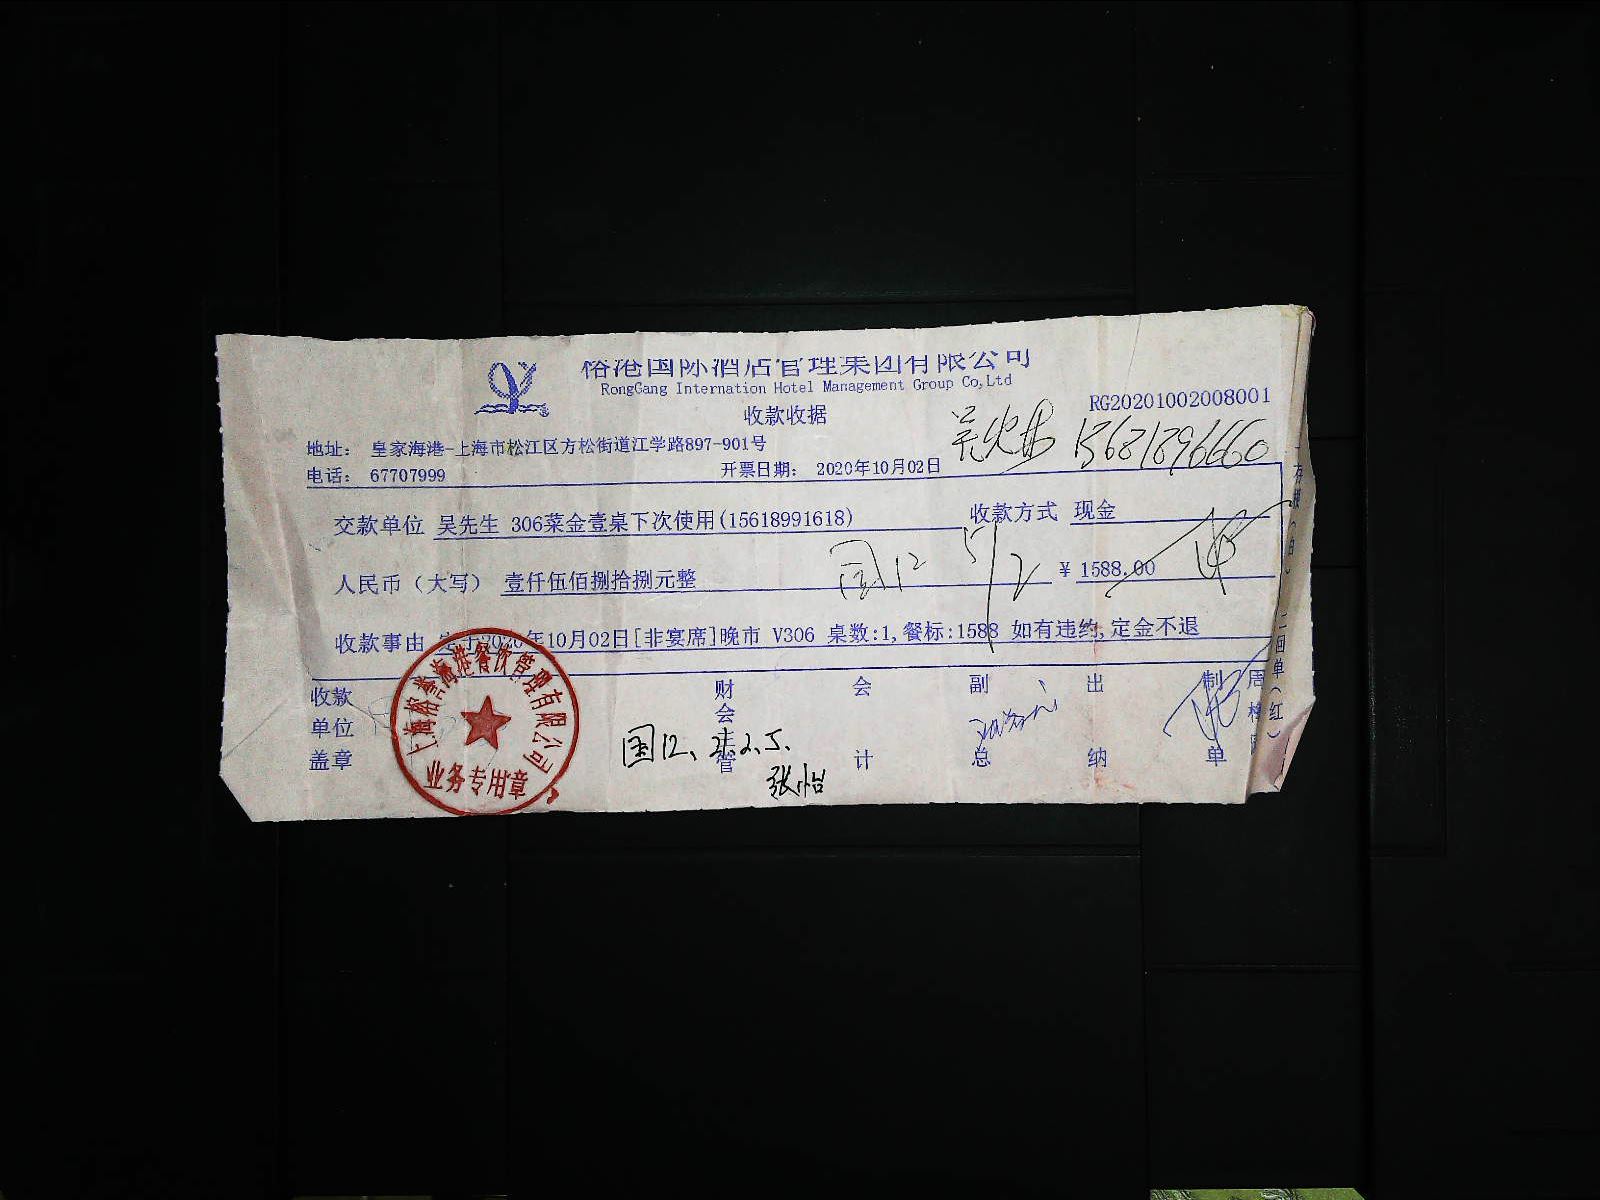 裕港国际酒店管理集团有限公司
RongGang Internation Hotel Management Group Co,Ltd
收款收据
RG20201002008001
地址: 皇家海港-上海市松江区方松街道江学路897-901号
电话: 67707999
开票日期: 2020年10月02日
13621896660
交款单位 吴先生 306菜金壹桌下次使用(15618991618)
收款方式 现金
人民币(大写) 壹仟伍佰捌拾捌元整
国12 5/2
¥ 1588.00
收款事由 2020年10月02日[非宴席]晚市 V306 桌数:1,餐标:1588 如有违约,定金不退
收款单位盖章
财会主管
会计
副总
出纳
制单
国12、2.2.5.
张怡
上海裕港海港餐饮管理有限公司
业务专用章
二回单(红)